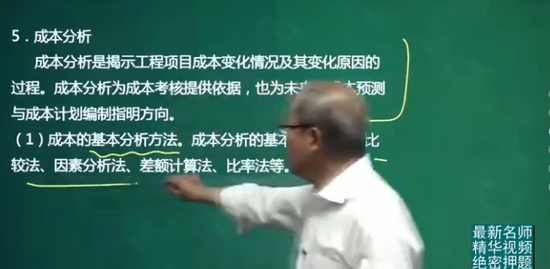 5．成本分析
成本分析是揭示工程项目成本变化情况及其变化原因的
过程。成本分析为成本考核提供依据，也为未来 本预测
与成本计划编制指明方向。
（1）成本的基本分析方法。成本分析的基本 比
较法、因素分析法、差额计算法、比率法等。
最新名师
精华视频
绝密押题